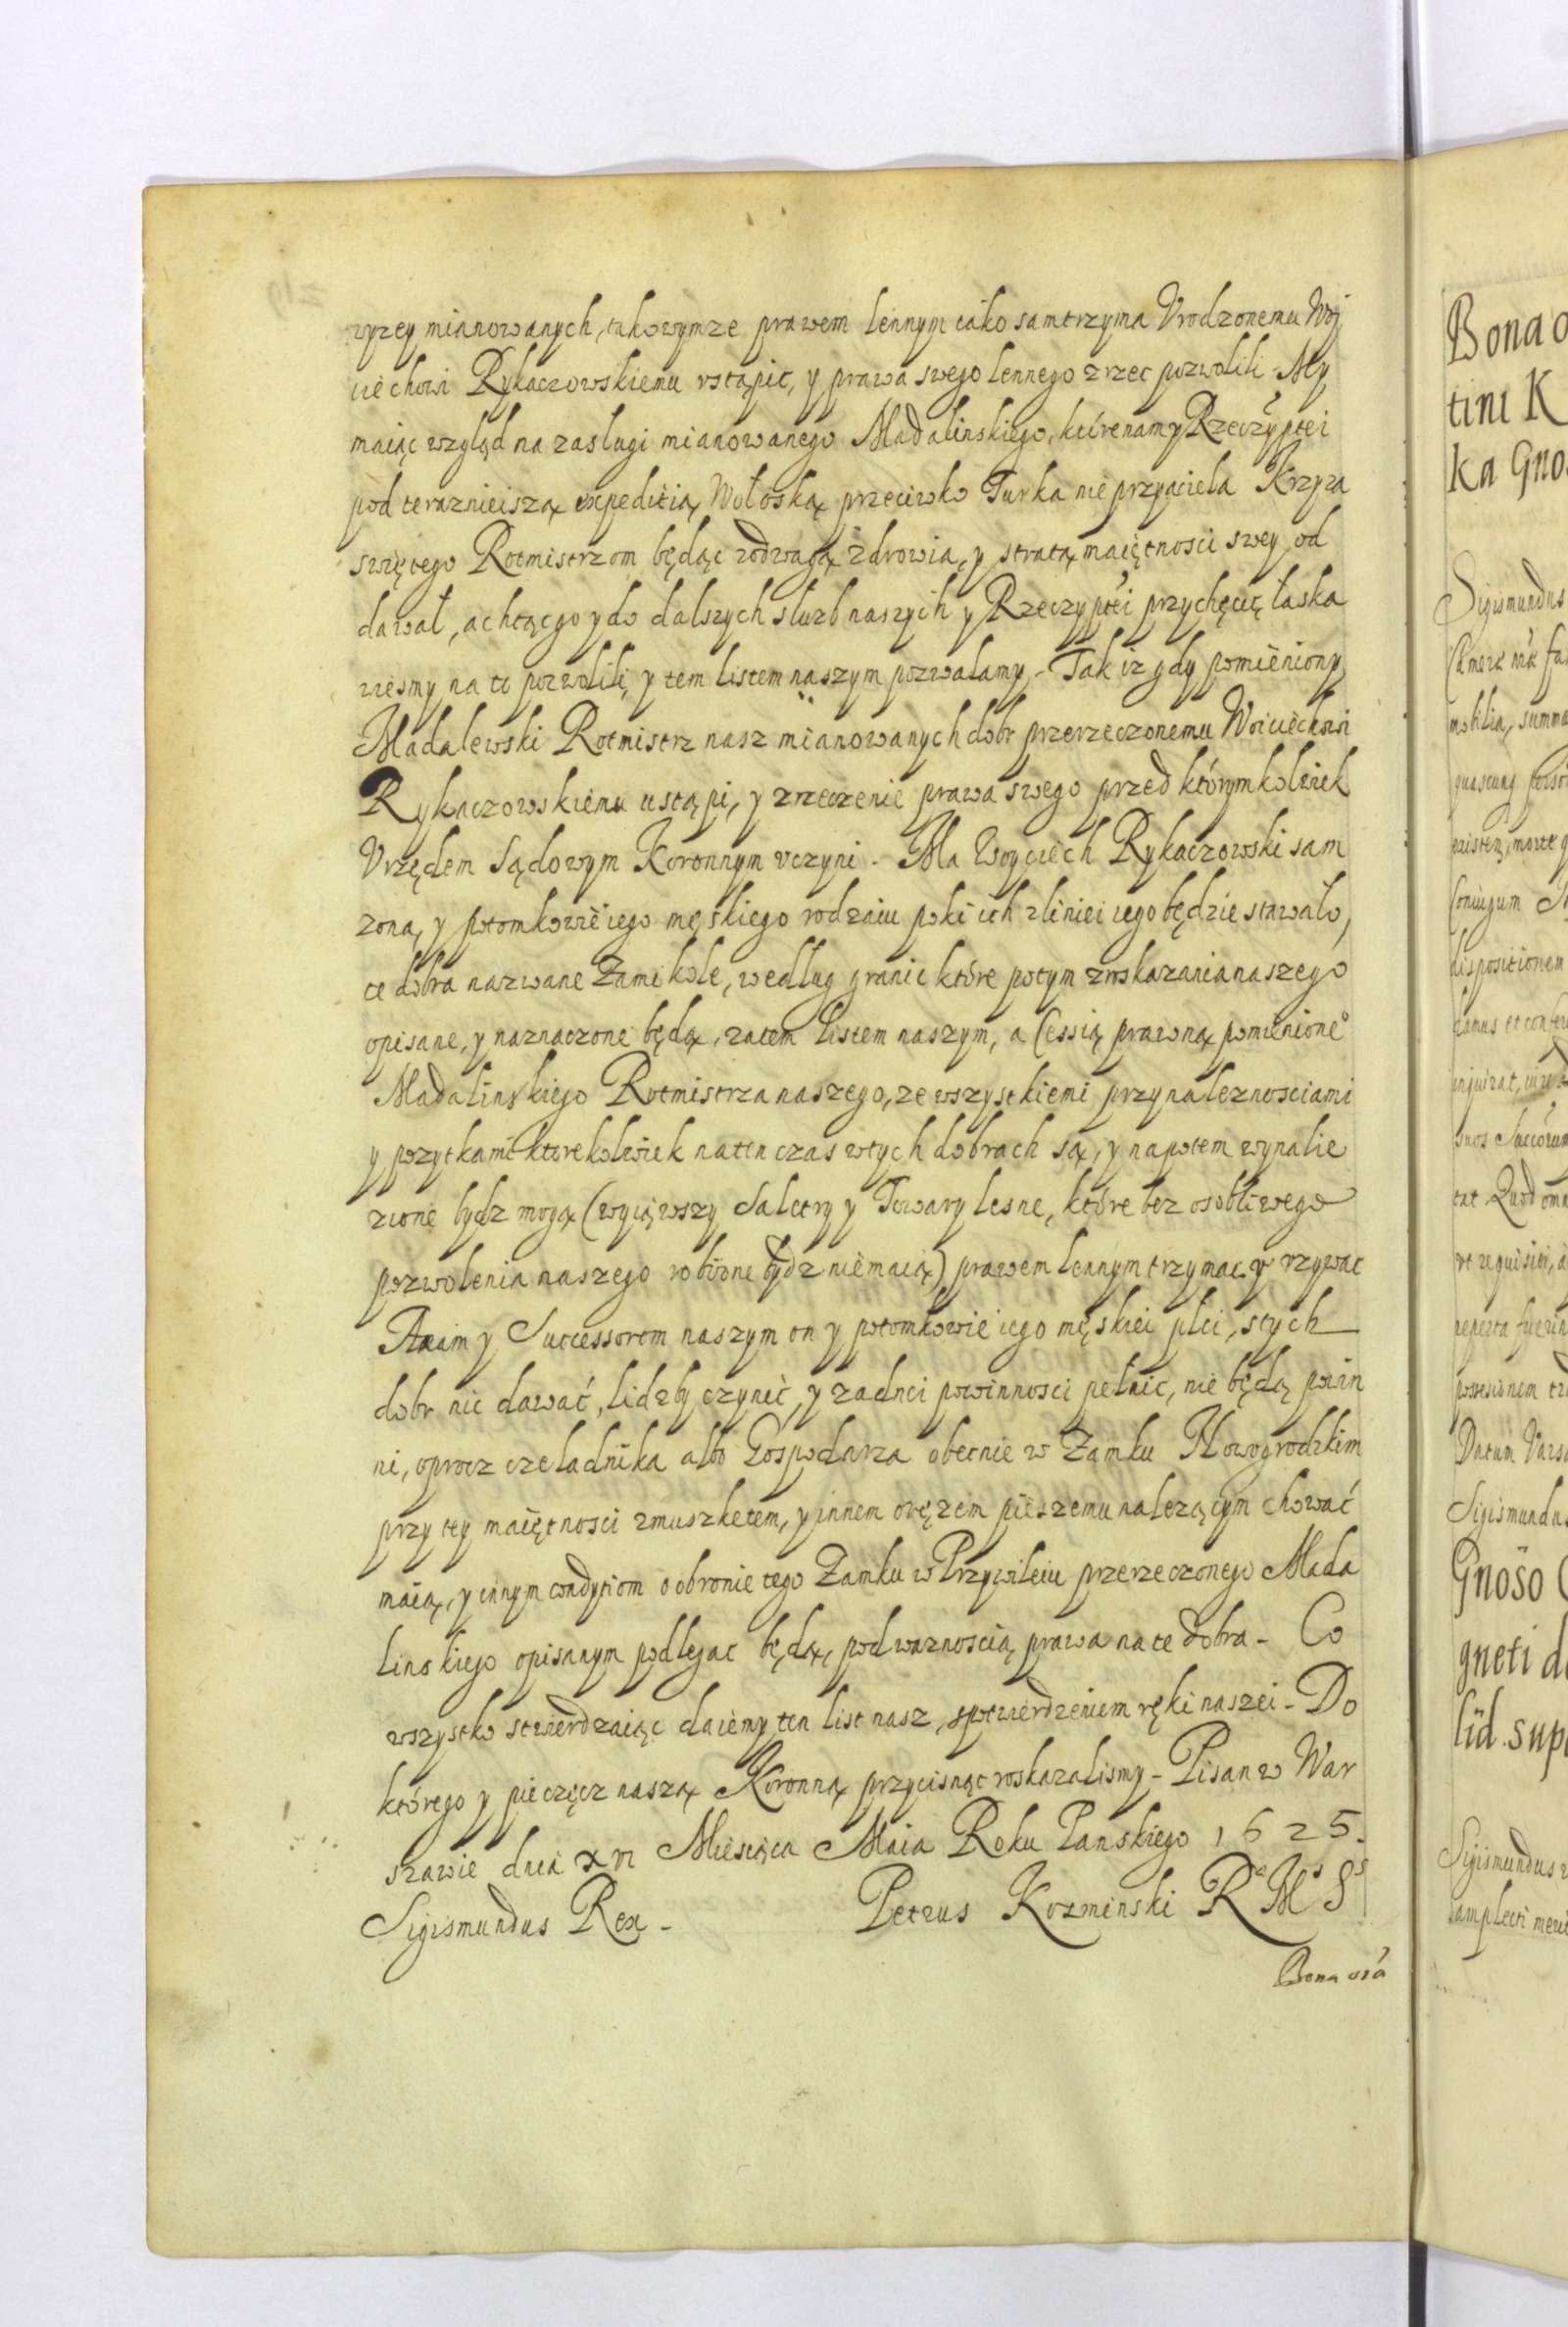 wyzey mianowanych, takowymze prawem lennym iako sam trzyma Vrodzonemu Woj
ciechowi Rykaczowskiemu vstąpic, y prawa swego lennego zrzec pozwolili. My
maiąc wzgląd na zasługi mianowanego Madalinskiego, które nam y Rzeczyptei
pod terazniejszą expeditią Wołoską przeciwko Turka nieprzyaciela Krzyza
swiętego Rotmistrzom będąc z odwagą zdrowia, y stratą maiętnosci swey od
dawał, a chcąc go y do dalszych słuzb naszych y Rzeczyptei przychęcic łaska
wiesmy na to pozwolili y tem listem naszym pozwalamy - Tak iz gdy pomieniony
Madalewski Rotmistrz nasz mianowanych dobr przerzeczonemu Woiciechowi
Rykaczowskiemu ustąpi, y zrzeczenie prawa swego przed którymkolwiek
Vrzędem Sądowym Koronnym vczyni - Ma Woyciech Rykaczowski sam
zona, y potomkowie iego męskiego rodzaiu poki ich z liniei iego będzie stawało,
te dobra nazwane Zamikole, według granic które potym z roskazania naszego
opisane, y naznaczone będą, za tem listem naszym, a Cessią prawną pomienione°
Madalinskiego Rotmistrza naszego, ze wszystkiemi przynaleznosciami
y pozytkami ktorekolwiek na ten czas w tych dobrach są, y napotem wynalie
zione bydz mogą (wyiąwszy Saletry y Towary lesne, które bez osobliwego
pozwolenia naszego robione bydz nie maią) prawem lennym trzymac y vzywac
A nam y Successorom naszym on y potomkowie iego męskiei plci, s tych
dobr nic dawać, lidzby czynić, y zadnei powinnosci pełnic, nie będą powin
ni, oprocz czeladnika albo Gospodarza obecnie w Zamku Nowogrodzkim
przy tey maiętnosci z muszketem, y innem oręzem pieszemu nalezącym chować
maią, y innym condytiom o obronie tego Zamku w Przywileiu przerzeczonego Mada
linskiego opisanym podlegac będą, pod waznoscią prawa na te dobra - Co
wszystko stwierdzaiąc daiemy ten list nasz, s potwierdzeniem ręki naszei - Do
którego y pieczęcz naszą Koronną przycisnąc roskazalismy - Pisan w War
szawie dnia XVI Miesiąca Maia Roku Panskiego 1625.
Sigismundus Rex - Petrus Kozminski R M S
Bona
Bona
tini K
ka Gno
Sigismundus
mobilia, summa
Coniugum
dispositionem
Datum Varso
Sigismundus
Gnoso
gneti
lid. sup
Sigismundus